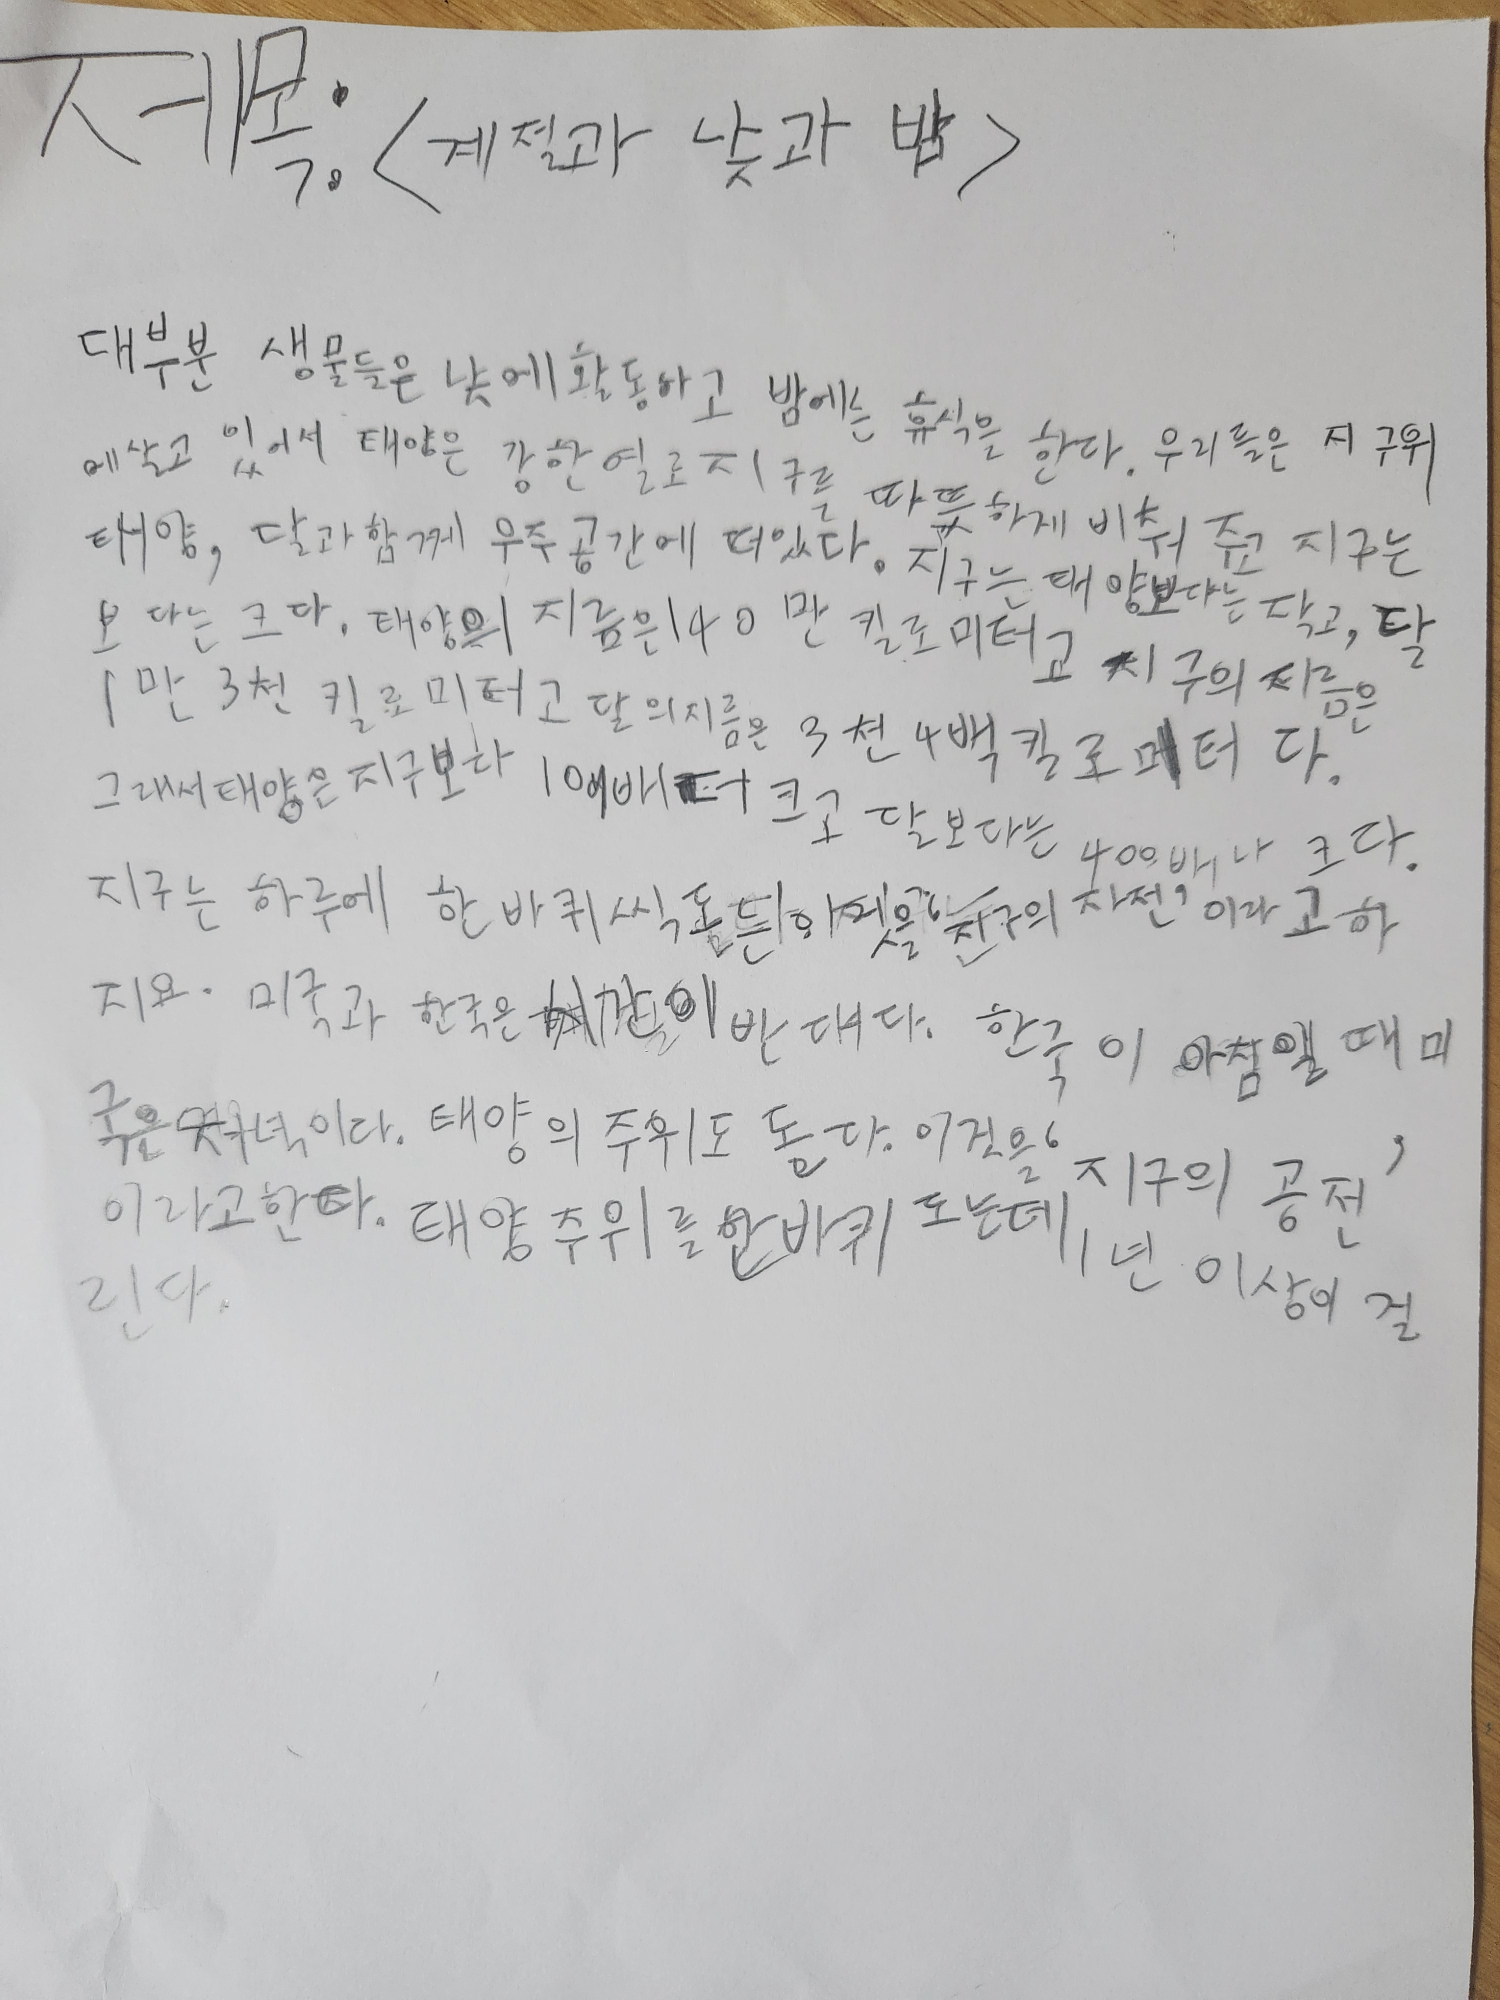 제목: <계절과 낮과 밤>
대부분 생물들은 낮에 활동하고 밤에는 휴식을 한다. 우리들은 지구위
에살고 있어서 태양은 강한열로 지구를 따뜻하게 비춰 주고 지구는
태양, 달과함께 우주공간에 떠있다. 지구는 태양보다는 작고, 달
보다는 크다. 태양의 지름은 140만 킬로미터고 지구의 지름은
1만 3천 킬로미터고 달의지름은 3천4백킬로미터 다.
그래서태양은지구보다 배 크고 달보다는 400배나 크다.
지구는 하루에 한바퀴씩 '지구의 자전'이라고하
지요. 미국과 한국은 시간이 반대다. 한국이 아침일 때 미
국은 저녁이다. 태양의 주위도 돈다. 이것을 '지구의 공전'
이라고한다. 태양주위를한바퀴 도는데 1년 이상이 걸
린다.